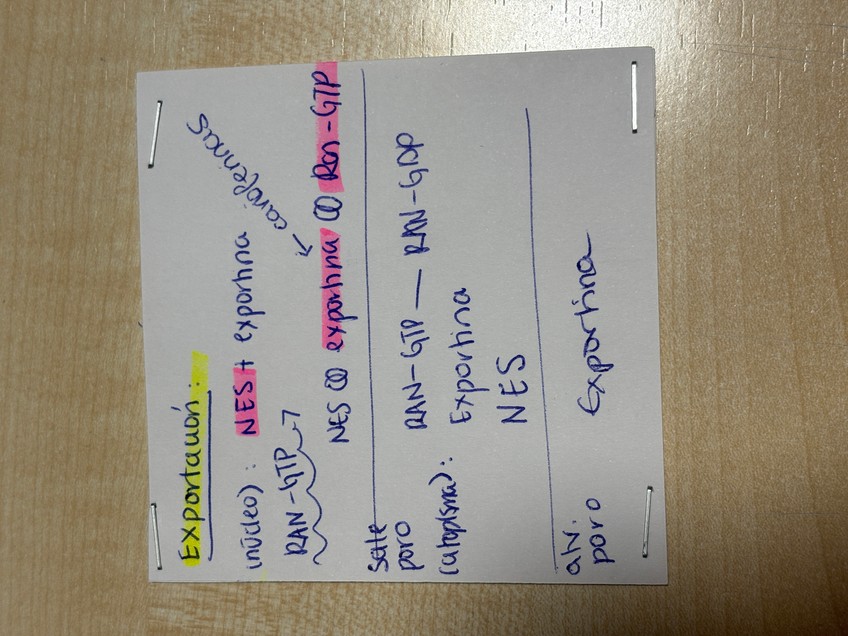 Exportación:
(núcleo): NES + exportina
RAN-GTP
cariofeninas
NES exportina Ran-GTP
Sale
poro RAN-GTP — RAN-GDP
(citoplsma): Exportina
NES
atv.
poro Exportina